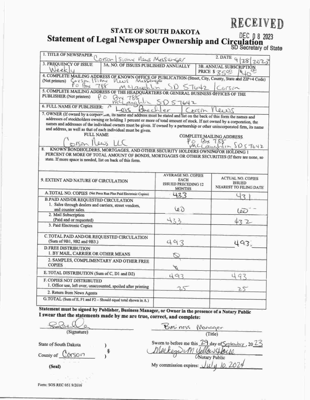 RECEIVED
DEC 08 2023
SD Secretary of State
STATE OF SOUTH DAKOTA
Statement of Legal Newspaper Ownership and Circulation
1. TITLE OF NEWSPAPER
2. DATE
9/28/2023
3. FREQUENCY OF ISSUE
Weekly
3A. NO. OF ISSUES PUBLISHED ANNUALLY
3B. ANNUAL SUBSCRIPTION
PRICE $
4. COMPLETE MAILING ADDRESS OF KNOWN OFFICE OF PUBLICATION (Street, City, County, State and ZIP+4 Code)
(Not printers)
PO Box 788 McLaughlin SD 57642 / Corson
5. COMPLETE MAILING ADDRESS OF THE HEADQUARTERS OR GENERAL BUSINESS OFFICES OF THE
PUBLISHER (Not printers)
PO Box 788
McLaughlin SD 57642
6. FULL NAME OF PUBLISHER:
Corson News
7. OWNER (If owned by a corporation, its name and address must be stated and list on the back of this form the names and
addresses of stockholders owning or holding 1 percent or more of total amount of stock. If not owned by a corporation, the
names and addresses of the individual owners must be given. If owned by a partnership or other unincorporated firm, its name
and address, as well as that of each individual must be given.
FULL NAME
COMPLETE MAILING ADDRESS
Corson News LLC
PO Box 788
McLaughlin SD 57642
8. KNOWN BONDHOLDERS, MORTGAGES, AND OTHER SECURITY HOLDERS OWNING OR HOLDING 1
PERCENT OR MORE OF TOTAL AMOUNT OF BONDS, MORTGAGES OR OTHER SECURITIES (If there are none, so
state. If more space is needed, list on back of this form.
9. EXTENT AND NATURE OF CIRCULATION
AVERAGE NO. COPIES
EACH
ISSUED PRECEDING 12
MONTHS
ACTUAL NO. COPIES
ISSUED
NEAREST TO FILING DATE
A. TOTAL NO. COPIES
B. PAID AND/OR REQUESTED CIRCULATION
1. Sales through dealers and carriers, street vendors,
and counter sales.
60
60
2. Mail Subscription
(Paid and or requested)
433
432
3. Paid Electronic Copies
C. TOTAL PAID AND/OR REQUESTED CIRCULATION
(Sum of 9B1, 9B2 and 9B3.)
493
493
D. FREE DISTRIBUTION
1. BY MAIL, CARRIER OR OTHER MEANS
2. SAMPLES, COMPLIMENTARY AND OTHER FREE
COPIES
E. TOTAL DISTRIBUTION (Sum of C, D1 and D2)
493
493
F. COPIES NOT DISTRIBUTED
1. Office use, left over, unaccounted, spoiled after printing
25
25
2. Return from News Agents
G. TOTAL (Sum of E, F1 and F2 - Should equal total shown in A.)
Statement must be signed by Publisher, Business Manager, or Owner in the presence of a Notary Public
I swear that the statements made by me are true, correct, and complete:
Business Manager
(Signature)
(Title)
State of South Dakota )
Sworn to before me this 29 day of September, 2023
County of Corson )
(Seal)
(Notary Public)
My commission expires: July 10, 2024